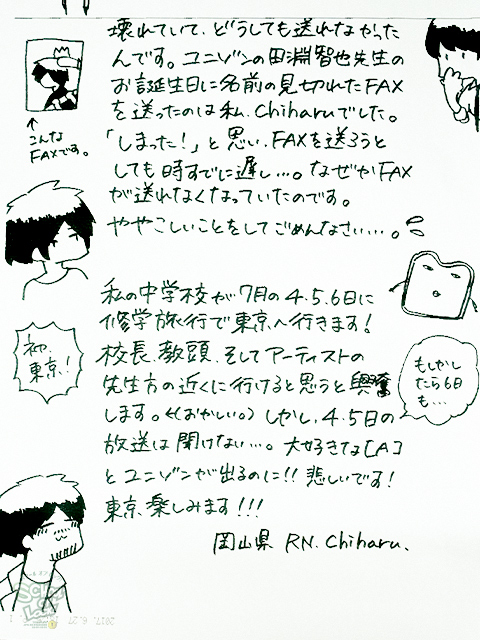 壊れていて、どうしても送れなかった
んです。ユニゾンの田淵智也先生の
お誕生日に名前の見切れたFAX
を送ったのは私、Chiharuでした。
「しまった!」と思い、FAXを送ろうと
しても時すでに遅し…。なぜかFAX
が送れなくなっていたのです。
ややこしいことをしてごめんなさい…。
↑
こんな
FAXです。
私の中学校が7月の4.5.6日に
修学旅行で東京へ行きます!
校長、教頭、そしてアーティストの
先生方の近くに行けると思うと興奮
します。←(おかしい。)しかし、4.5日の
放送は聞けない…。大好きな[A]
とユニゾンが出るのに!!悲しいです!
東京楽しみます!!!
初、
東京!
もしかし
たら6日
も…
岡山県 RN. Chiharu.
2017. 6.27